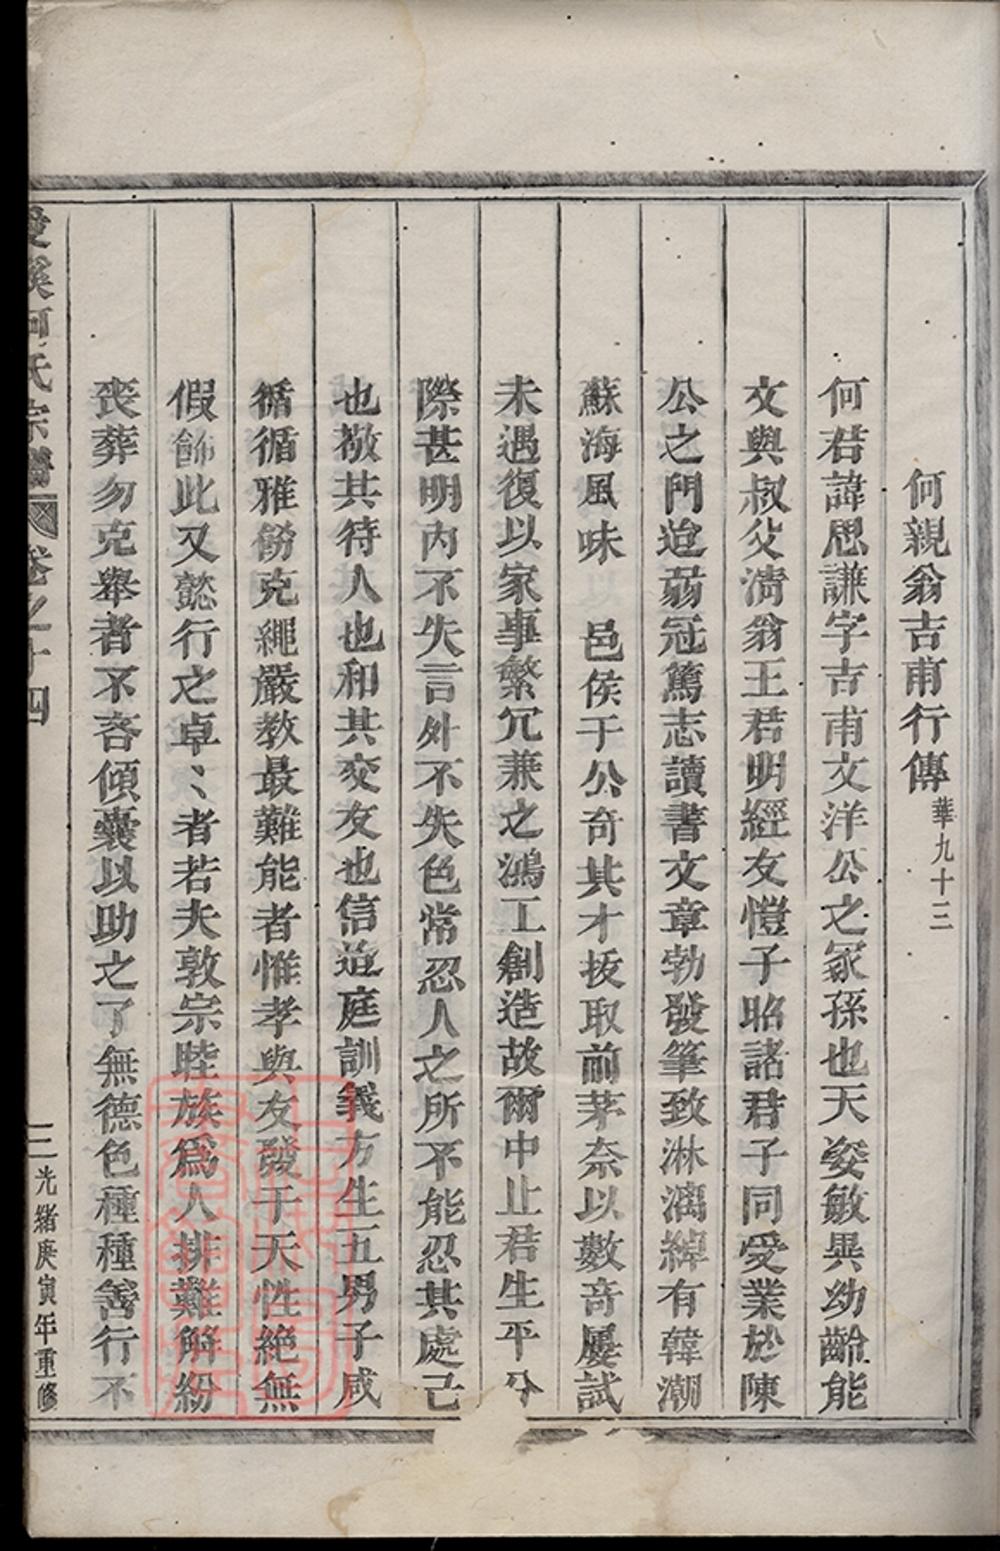 何親翁吉甫行傳華九十三
何君諱思謙字吉甫文洋公之冢孫也天姿敏異幼齡能
文與叔父淸翁王君明經友愷子昭諸君子同受業於陳
公之門迨弱冠篤志讀書文章勃發筆致淋漓綽有韓潮
蘇海風味 邑侯于公奇其才拔取前茅奈以數奇屢試
未遇復以家事繁冗兼之鴻工創造故爾中止君生平分
際甚明內不失言外不失色常忍人之所不能忍其處己
也敬其待人也和其交友也信迨庭訓義方生五男子咸
循循雅飭克繩嚴教最難能者惟孝與友發于天性絶無
假飾此又懿行之卓〻者若夫敦宗睦族爲人排難解紛
喪葬勿克舉者不吝傾囊以助之了無德色種種善行不
溪何氏宗譜 卷之十四 三 光緒庚寅年重修